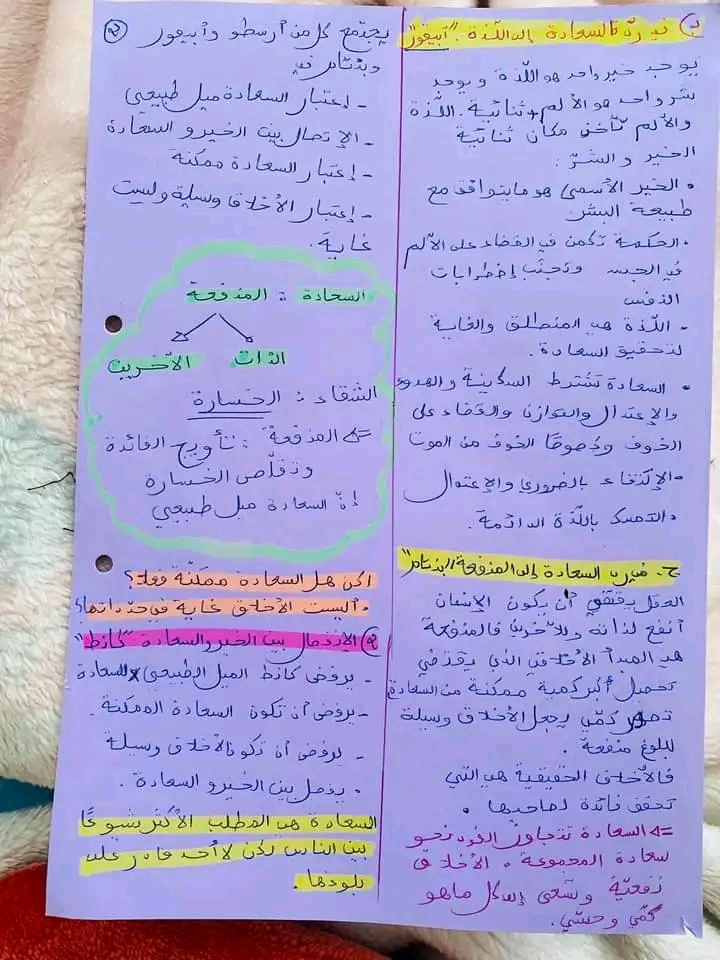 ب) في ردّ السعادة إلى اللذّة: "أبيقور"
يوجد خير واحد هو اللّذة ويوجد
شر واحد هو الألم + ثنائية اللّذة
والألم تأخذ مكان ثنائية
الخير والشرّ.
• الخير الأسمى هو ما يتوافق مع
طبيعة البشر
• الحكمة تكمن في القضاء على الألم
في الجسد وتجنّب إضطرابات
النفس
- اللّذة هي المنطلق والغاية
لتحقيق السعادة.
• السعادة تشترط السكينة والهدوء
والإعتدال والتوازن والقضاء على
الخوف وخصوصًا الخوف من الموت
• الإكتفاء بالضروري والإعتدال
• التمسك باللّذة الدائمة.
ج- في ردّ السعادة إلى المنفعة "بنتام"
العقل يقتضي أن يكون الإنسان
أنفع لذاته وللآخرين فالمنفعة
هي المبدأ الأخلاقي الذي يقتضي
تحصيل أكبر كمية ممكنة من السعادة
تصوّر كمّي يجعل الأخلاق وسيلة
لبلوغ منفعة.
فالأخلاق الحقيقية هي التي
تحقق فائدة لصاحبها.
<= السعادة تتجاوز الفرد نحو
سعادة المجموعة. الأخلاق
نفعيّة وتسعى إلى كل ما هو
كمّي وحسّي.
②
يجتمع كل من أرسطو وأبيقور
وبنتام في
- إعتبار السعادة ميل طبيعي
- الإتصال بين الخير والسعادة
- إعتبار السعادة ممكنة
- إعتبار الأخلاق وسيلة وليست
غاية.
السعادة : المنفعة
الذات الآخرين
الشقاء : الخسارة
<= المنفعة : تأويج الفائدة
وتقلّص الخسارة
إنّ السعادة ميل طبيعي
لكن هل السعادة ممكنة فعلا؟
• أليست الأخلاق غاية في حدّ ذاتها؟
الإنفصال بين الخير والسعادة "كانط"
- يرفض كانط الميل الطبيعي للسعادة
- يرفض أن تكون السعادة الممكنة.
- يرفض أن تكون الأخلاق وسيلة
• يفصل بين الخير والسعادة.
السعادة هي المطلب الأكثر شيوعًا
بين الناس لكن لا أحد قادر على
بلوغها.